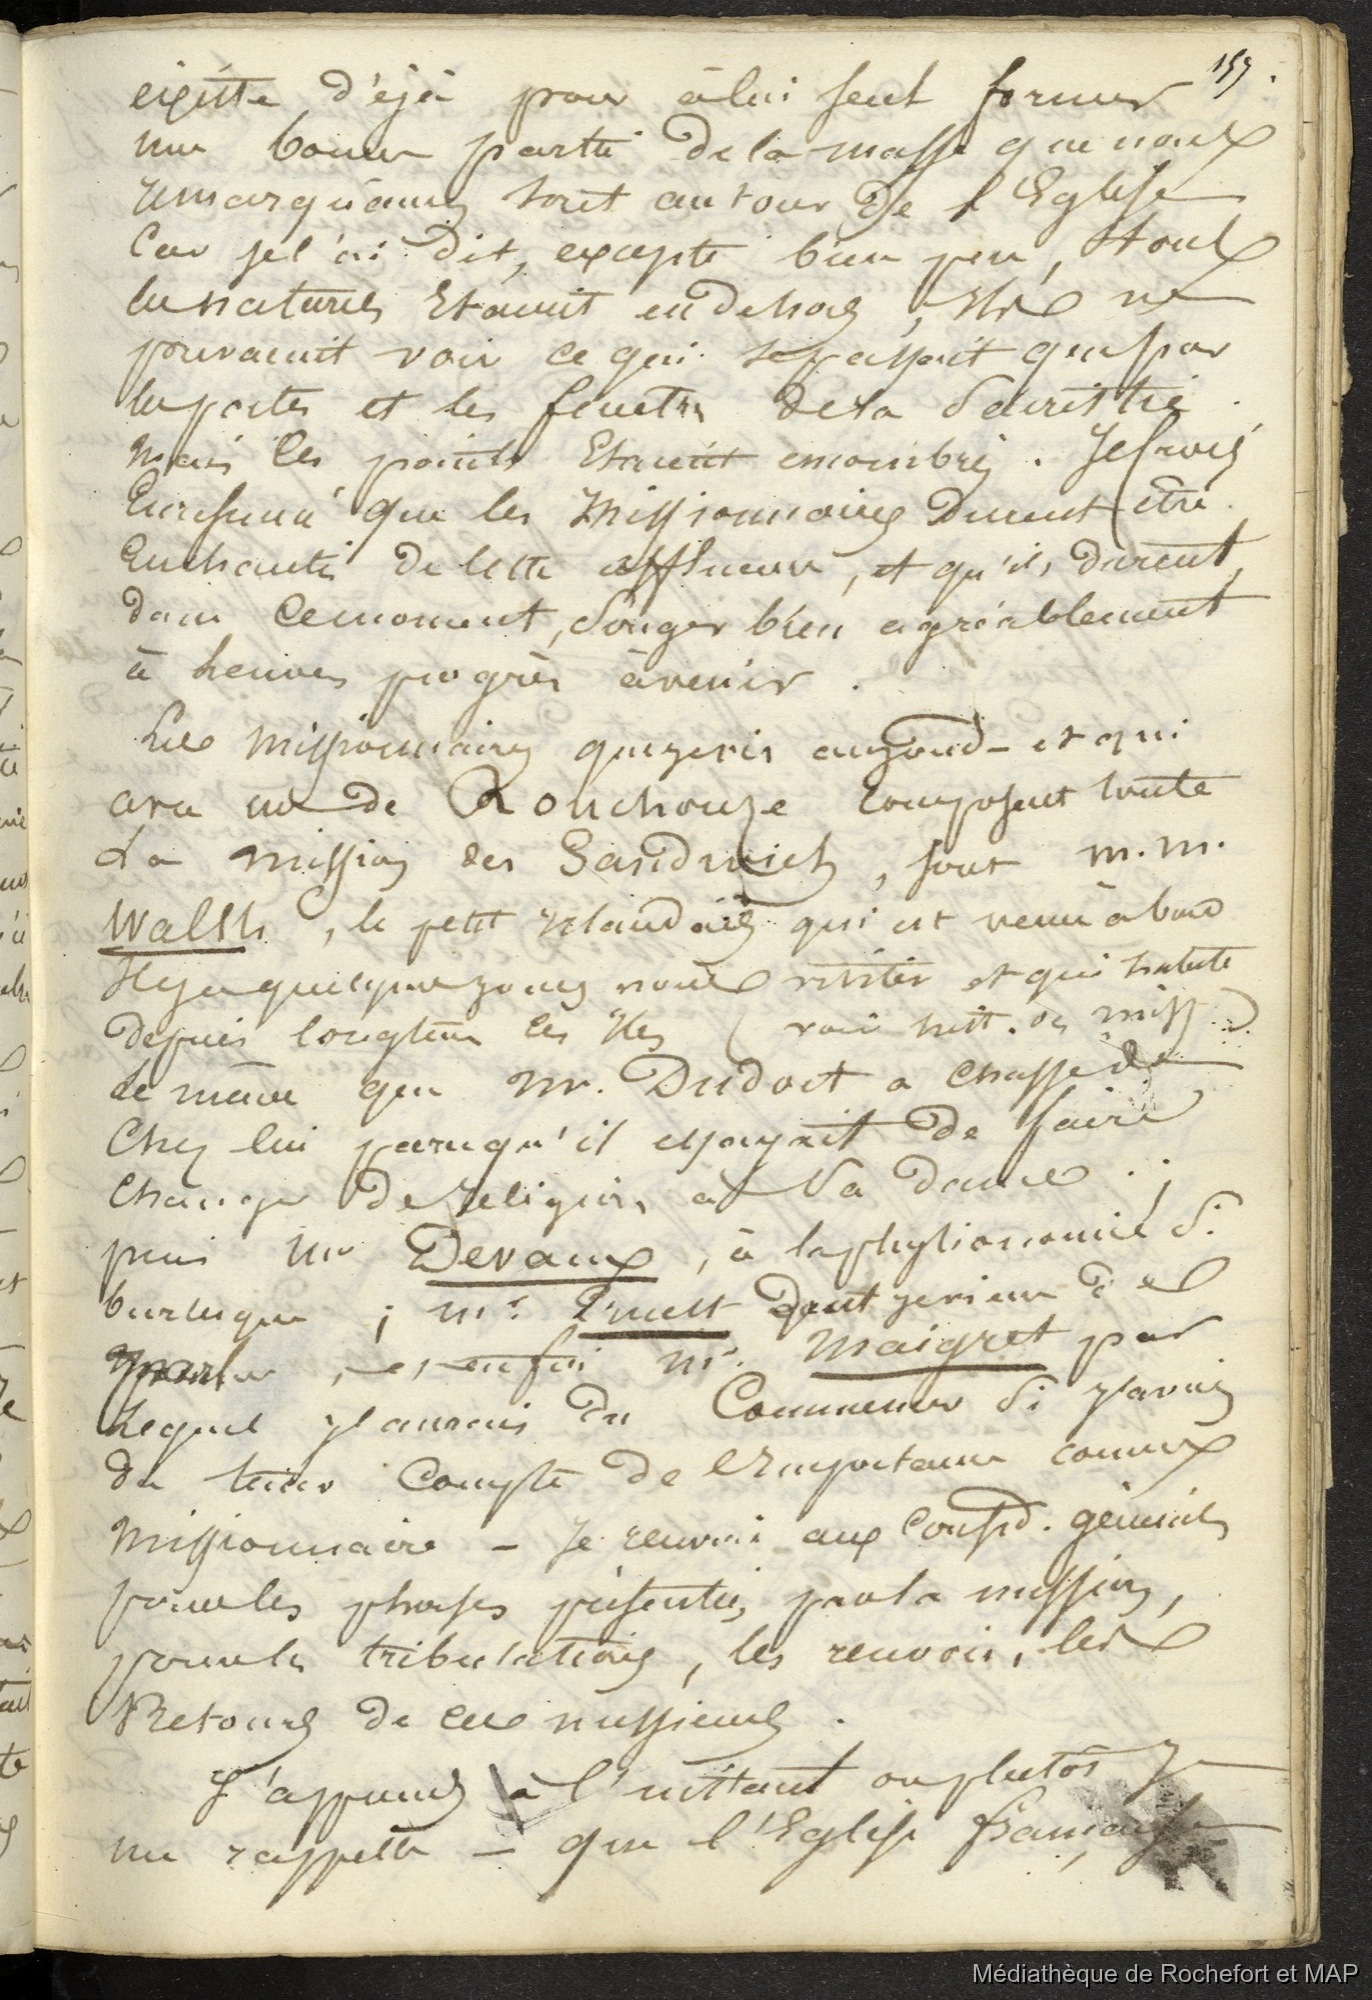 159.
existe déjà pour à lui seul former
une bonne partie de la masse que nous
remarquâmes tout autour de l'Eglise
Car je l'ai dit, excepté bien peu, tous
les naturels Etaient en dehors, et ne
pouvaient voir ce qui se passait que par
les portes et les fenetres de la Sacristie.
Mais les points Etaient encombrés. Je crois
En résumé que les Missionnaires durent être
Enchantés de cette affluence, et qu'ils durent,
dans ce moment, songer bien agréablement
à leurs progrès à venir.
Les Missionnaires que je vis aujourd- et qui
avec mr de Rouchouze composent toute
La mission des Sandwich, sont m.m.
Walsh, le petit irlandais qui est venu à bord
Il y a quelques jours nous visiter et qui habite
depuis longtems les Iles (voir hist. des miss.)
le même que Mr. Dudoit a chassé de
Chez lui parcequ'il essayait de faire
Changer de religion à Sa dame . ;
puis Mr Devaux, à la physionomie Si
burlesque ; mr. dont je viens de
parler, et enfin Mr. Maigret par
Lequel j'aurais du Commencer Si j'avais
du tenir Compte de l'Importance comme
Missionnaire – Je renvoie aux Consid. générales
pour les phases présentées par la mission,
pour les tribulations, les renvois, les
Retours de ces messieurs.
J'apprends à l'instant ou plutôt je
me rappelle – que l'Eglise française
Médiathèque de Rochefort et MAP